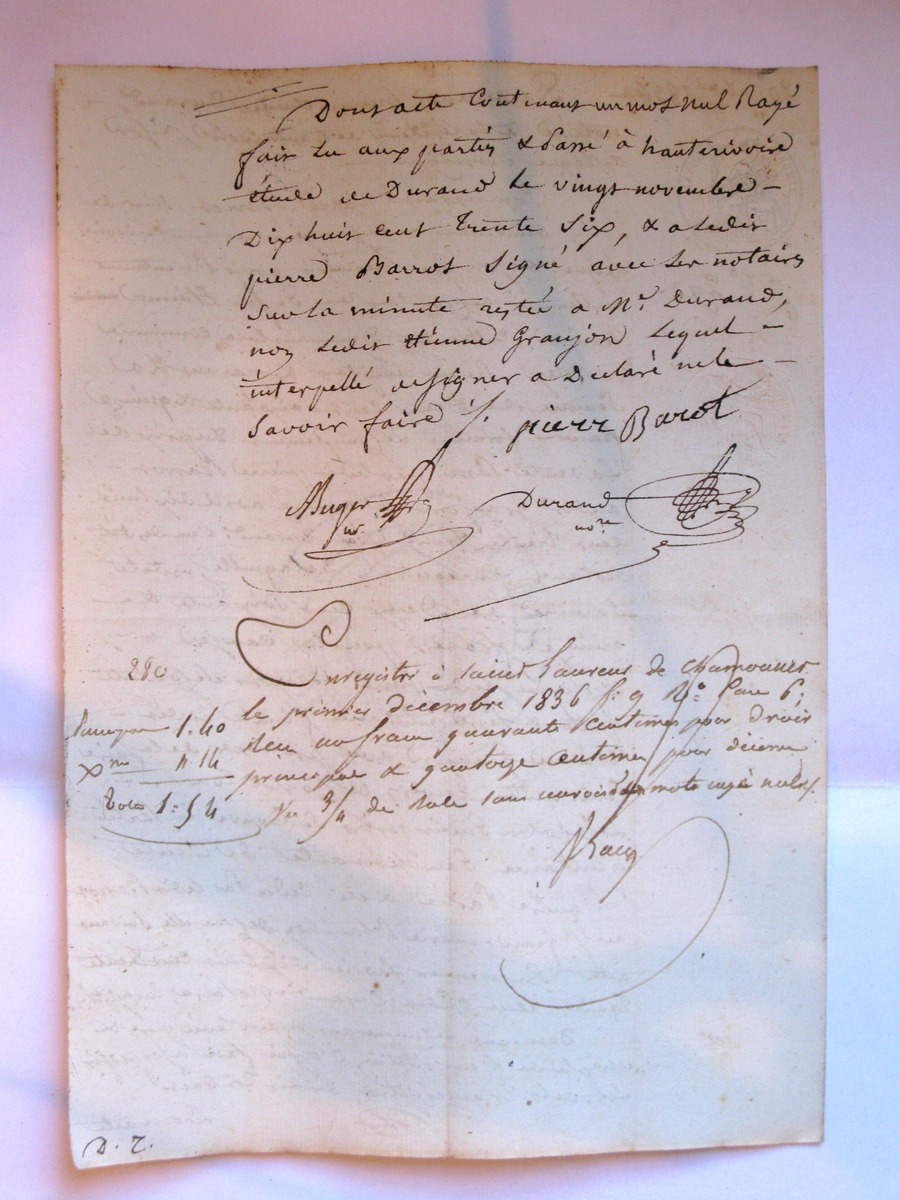 Dont acte Contenant un mot nul Rayé
fait Lu aux parties & Passé à hauterivoire
étude de Durand Le vingt novembre -
Dix huit cent Trente Six, & a Ledit
pierre Barrot Signé avec Les notaires
Sur La minute restée a Me. Durand,
non Ledit étienne Granjon Lequel -
interpellé de signer a Declaré ne le -
Savoir faire /.
pierre Barot
Durand
nore
280
Enregistré à saint Laurent de Chamousset
le premier décembre 1836 fo. 9 Vo. Case 6.
Reçu un franc quarante centimes pour droit
principal & quatorze centimes pour décime
1.40
Xme " 14
Total 1.54
3/4 de Role sans mots rayé nuls /.
D. T.